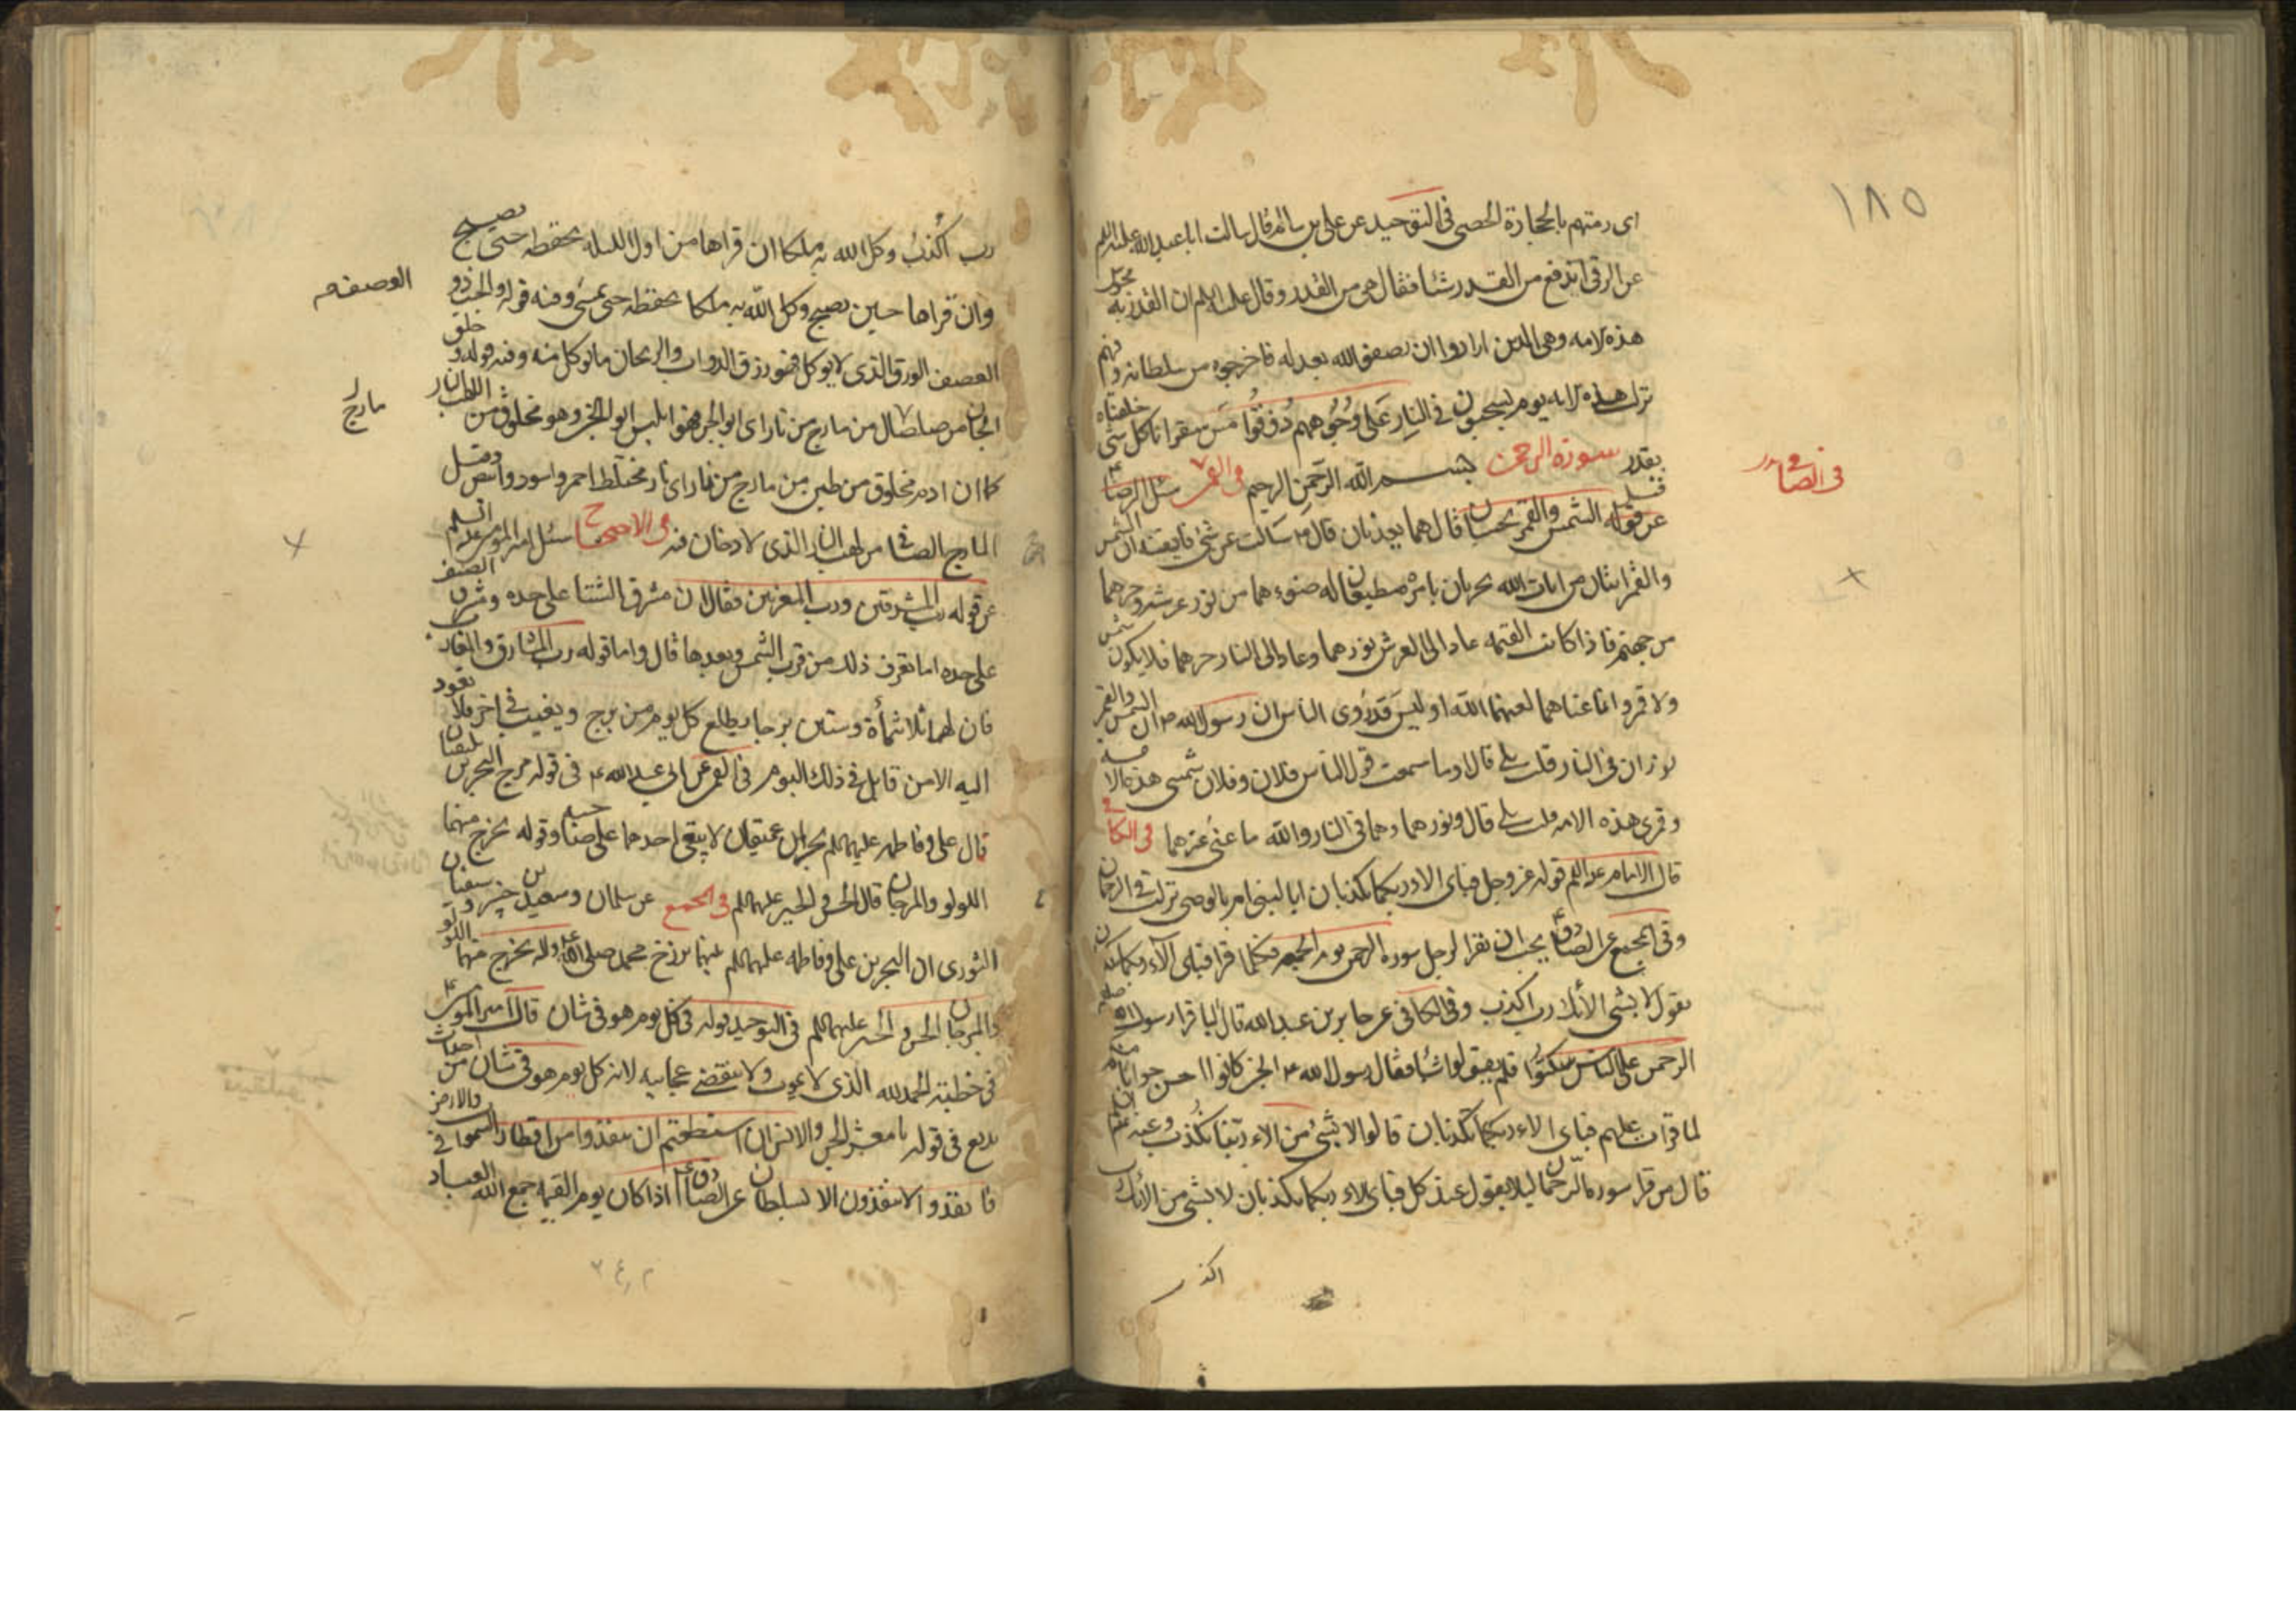 ١٨٥
اى رمتهم بالحجارة الحصى فى التوحيد عن على بن سالم قال سالت ابا عبد الله عليه السلم
عن الرقى اتدفع من القدر شئا فقال هى من القدر وقال عليه السلم ان القدرية مجوس
هذه الامه وهى الذين ارادوا ان يصفوا الله بعدله فاخرجوه من سلطانه وفيهم
نزلت هذه الايه يوم يسحبون فى النار على وجوههم ذوقوا مس سقر انا كل شى خلقناه
بقدر سورة الرحمن بسم الله الرحمن الرحيم فى القمى سئل الرضا ع
فى الصافى
عن قوله الشمس والقمر بحسبان قال هما يعذبان قيل الشمس
والقمر ايتان من ايات الله يجريان بامره مطيعان له ضوءهما من نور عرشه وحرهما
من جهنم فاذا كانت القيمه عاد الى العرش نورهما وعاد الى النار حرهما فلا يكون شمس
ولا قمر وانما عناهما لعنهما الله اوليس قد روى الناس ان رسول الله ص ان الشمس والقمر
نوران فى النار قلت بلى قال اوما سمعت قول الناس فلان وفلان شمسى هذه الامه
وقمرى هذه الامه قلت بلى قال ونورهما وهما فى النار والله ما عنى غيرهما فى الكافى
قال الامام عليه السلم قوله عز وجل فباى الاء ربكما تكذبان ابالنبى ام بالوصى نزلت فى الرحمان
وفى المجمع عن الصادق ع يجب ان يقرا الرجل سورة الرحمن يوم الجمعه فكلما قرا فباى آلاء ربكما تكذبان
يقول لا بشى من الائك رب اكذب وفى الكافى عن جابر بن عبد الله قال لما قرا رسول الله ص
الرحمن على الناس سكتوا فلم يقولوا شيئا فقال رسول الله ص الجن كانوا احسن جوابا منكم
لما قرات عليهم فباى الاء ربكما تكذبان قالوا لا بشى من الاء ربنا نكذب وعنه ع
قال من قرا سورة الرحمان ليلا يقول عند كل فباى الاء ربكما تكذبان لا بشى من الائك
اكذب
رب اكذب وكل الله به ملكا ان قراها من اول الليله يحفظه حتى يصبح
وان قراها حين يصبح وكل الله به ملكا يحفظه حتى يمسى ومنه قوله والحب ذو
العصف
العصف الورق الذى لا يوكل فهو رزق الدواب والريحان ما يوكل منه ومنه قوله وخلق
مارج
الجان من صلصال من مارج من نار اى ابو الجن فهو ابليس ابو الجن وهو مخلوق من اللهب
كما ان ادم مخلوق من طين من مارج من نار اى نار مختلط احمر واسود وابيض وقيل
المارج الصافى من لهب النار الذى لا دخان فيه فى الاحتجاج سئل امير المومنين عليه السلم
عن قوله رب المشرقين ورب المغربين فقال ان مشرق الشتا على حده ومشرق الصيف
على حده اما تعرف ذلك من قرب الشمس وبعدها قال واما قوله رب المشارق والمغارب
فان لها ثلاثمأة وستين برجا يطلع كل يوم من برج ويغيب فى اخر فلا تعود
اليه الا من قابل فى ذلك اليوم فى القمى عن ابى عبد الله ع فى قوله مرج البحرين يلتقيان
قال على وفاطمه عليهما السلم بحران عميقان لا يبغى احدهما على صاحبه وقوله يخرج منهما
اللولو والمرجان قال الحسن والحسين عليهما السلم فى المجمع عن سلمان وسعيد بن جبير وسفيان
الثورى ان البحرين على وفاطمه عليهما السلم بينهما برزخ محمد صلى الله عليه واله يخرج منهما اللولو
والمرجان الحسن والحسين عليهما السلم فى التوحيد قوله فى كل يوم هو فى شان قال امير المومنين ع
فى خطبته الحمد لله الذى لا يموت ولا تنقضى عجايبه لانه كل يوم هو فى شان من احداث
بديع فى قوله يا معشر الجن والانس ان استطعتم ان تنفذوا من اقطار السموات والارض
فانفذوا لا تنفذون الا بسلطان عن الصادق ع اذا كان يوم القيمه جمع الله العباد